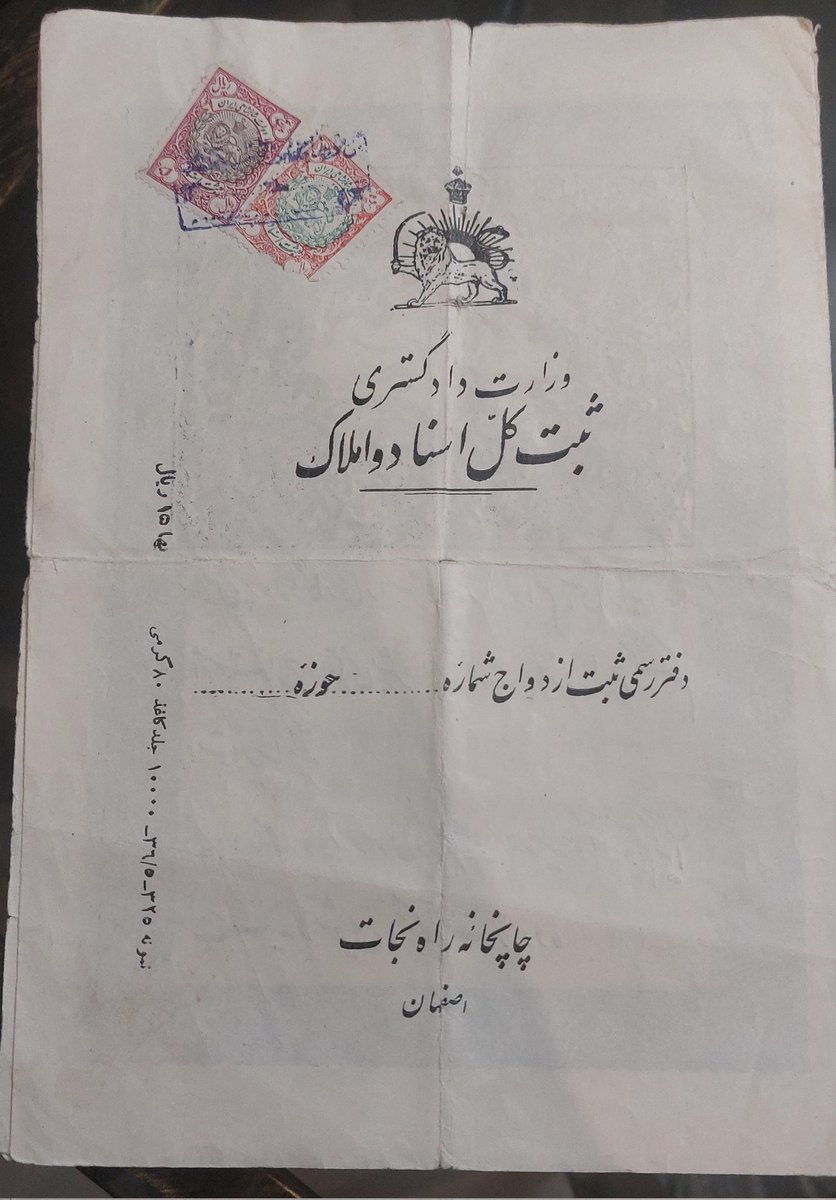 وزارت دادگستری
ثبت کلّ اسناد و املاک
بها ۱۵ ریال
دفتر رسمی ثبت ازدواج شماره .......... حوزه ..........
نمونه ۳۲۵_۳۶/۵_۱۰۰۰۰ جلد کاغذ ۸۰ گرمی
چاپخانه راه نجات
اصفهان